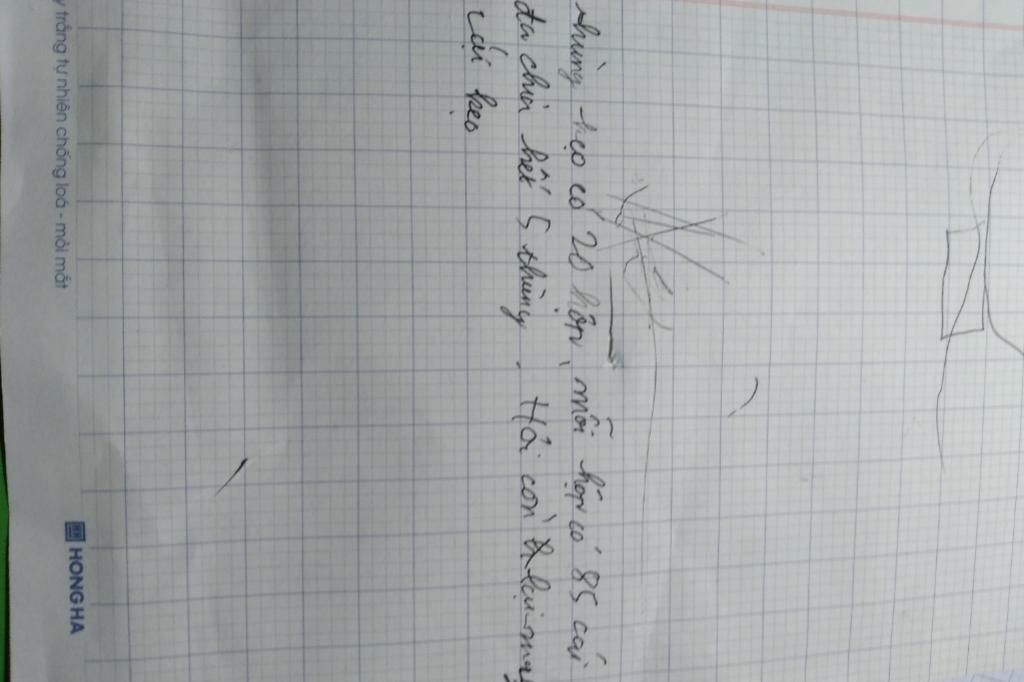 thùng kẹo có 20 hộp, mỗi hộp có 85 cái
đã chia hết 5 thùng. Hỏi còn lại mấy
cái kẹo
y trắng tự nhiên chống loá - mỏi mắt
HONG HA